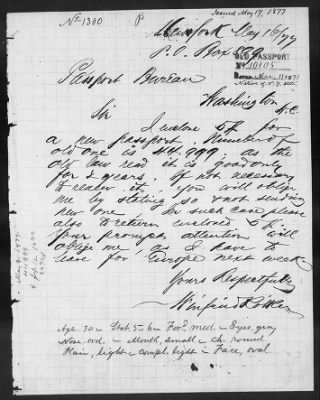 No 1360 P Issued May 17, 1877
New York May 16/77
P.O. Box
OLD PASSPORT
No 10105
Passport Bureau
Washington
D.C.
Sir
I enclose $5 for
a new passport. Number of
old one is On the
old one read it is good only
for 2 years. If not necessary
to renew it, you will oblige
me by stating so & not send
new one. In such case please
also to return enclosed $5.
Your prompt attention will
oblige me, as I have to
leave for Europe next week
Yours Respectfully
Age 30 – Stat. 5-6 – For'd, med. – Eyes, gray
Nose, ord. – Mouth, small – Ch. round
Hair, light – Compl. light – Face, oval